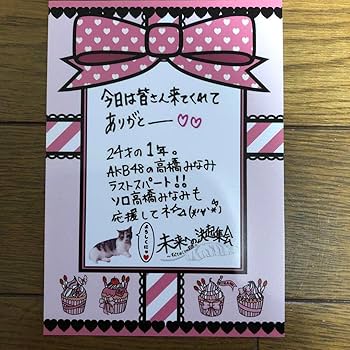 今日は皆さん来てくれて
ありがとーー♡♡
24才の1年。
AKB48の高橋みなみ
ラストスパート!!
ソロ高橋みなみも
応援してネ
よろしくにゃ
未来への決起集会